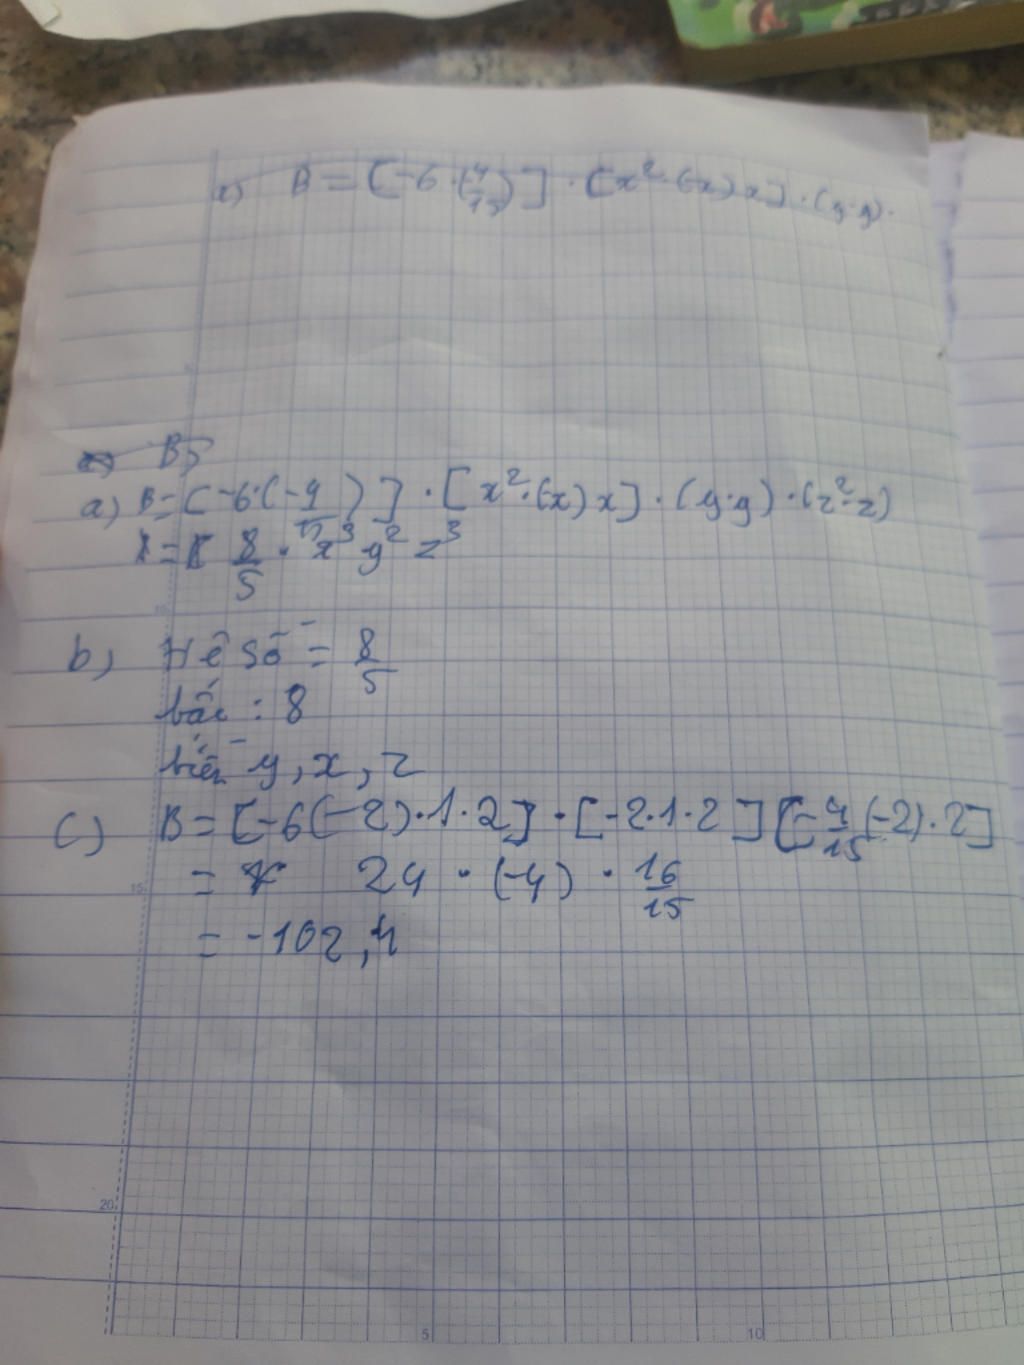 a) B = [-6 · (4/15)] · [x² · (-x) x] · (y · y).
B
a) B = [-6 · (-4/15)] · [x² · (x) x] · (y · y) · (z² · z)
= 8/5 · x³ y² z³
b) Hê số = 8/5
bấc : 8
biến y, x, z
c) B = [-6(-2) · 1 · 2] · [-2 · 1 · 2] [-4/15 (-2) · 2]
= 24 · (-4) · 16/15
= -102,4
20
15
5
10